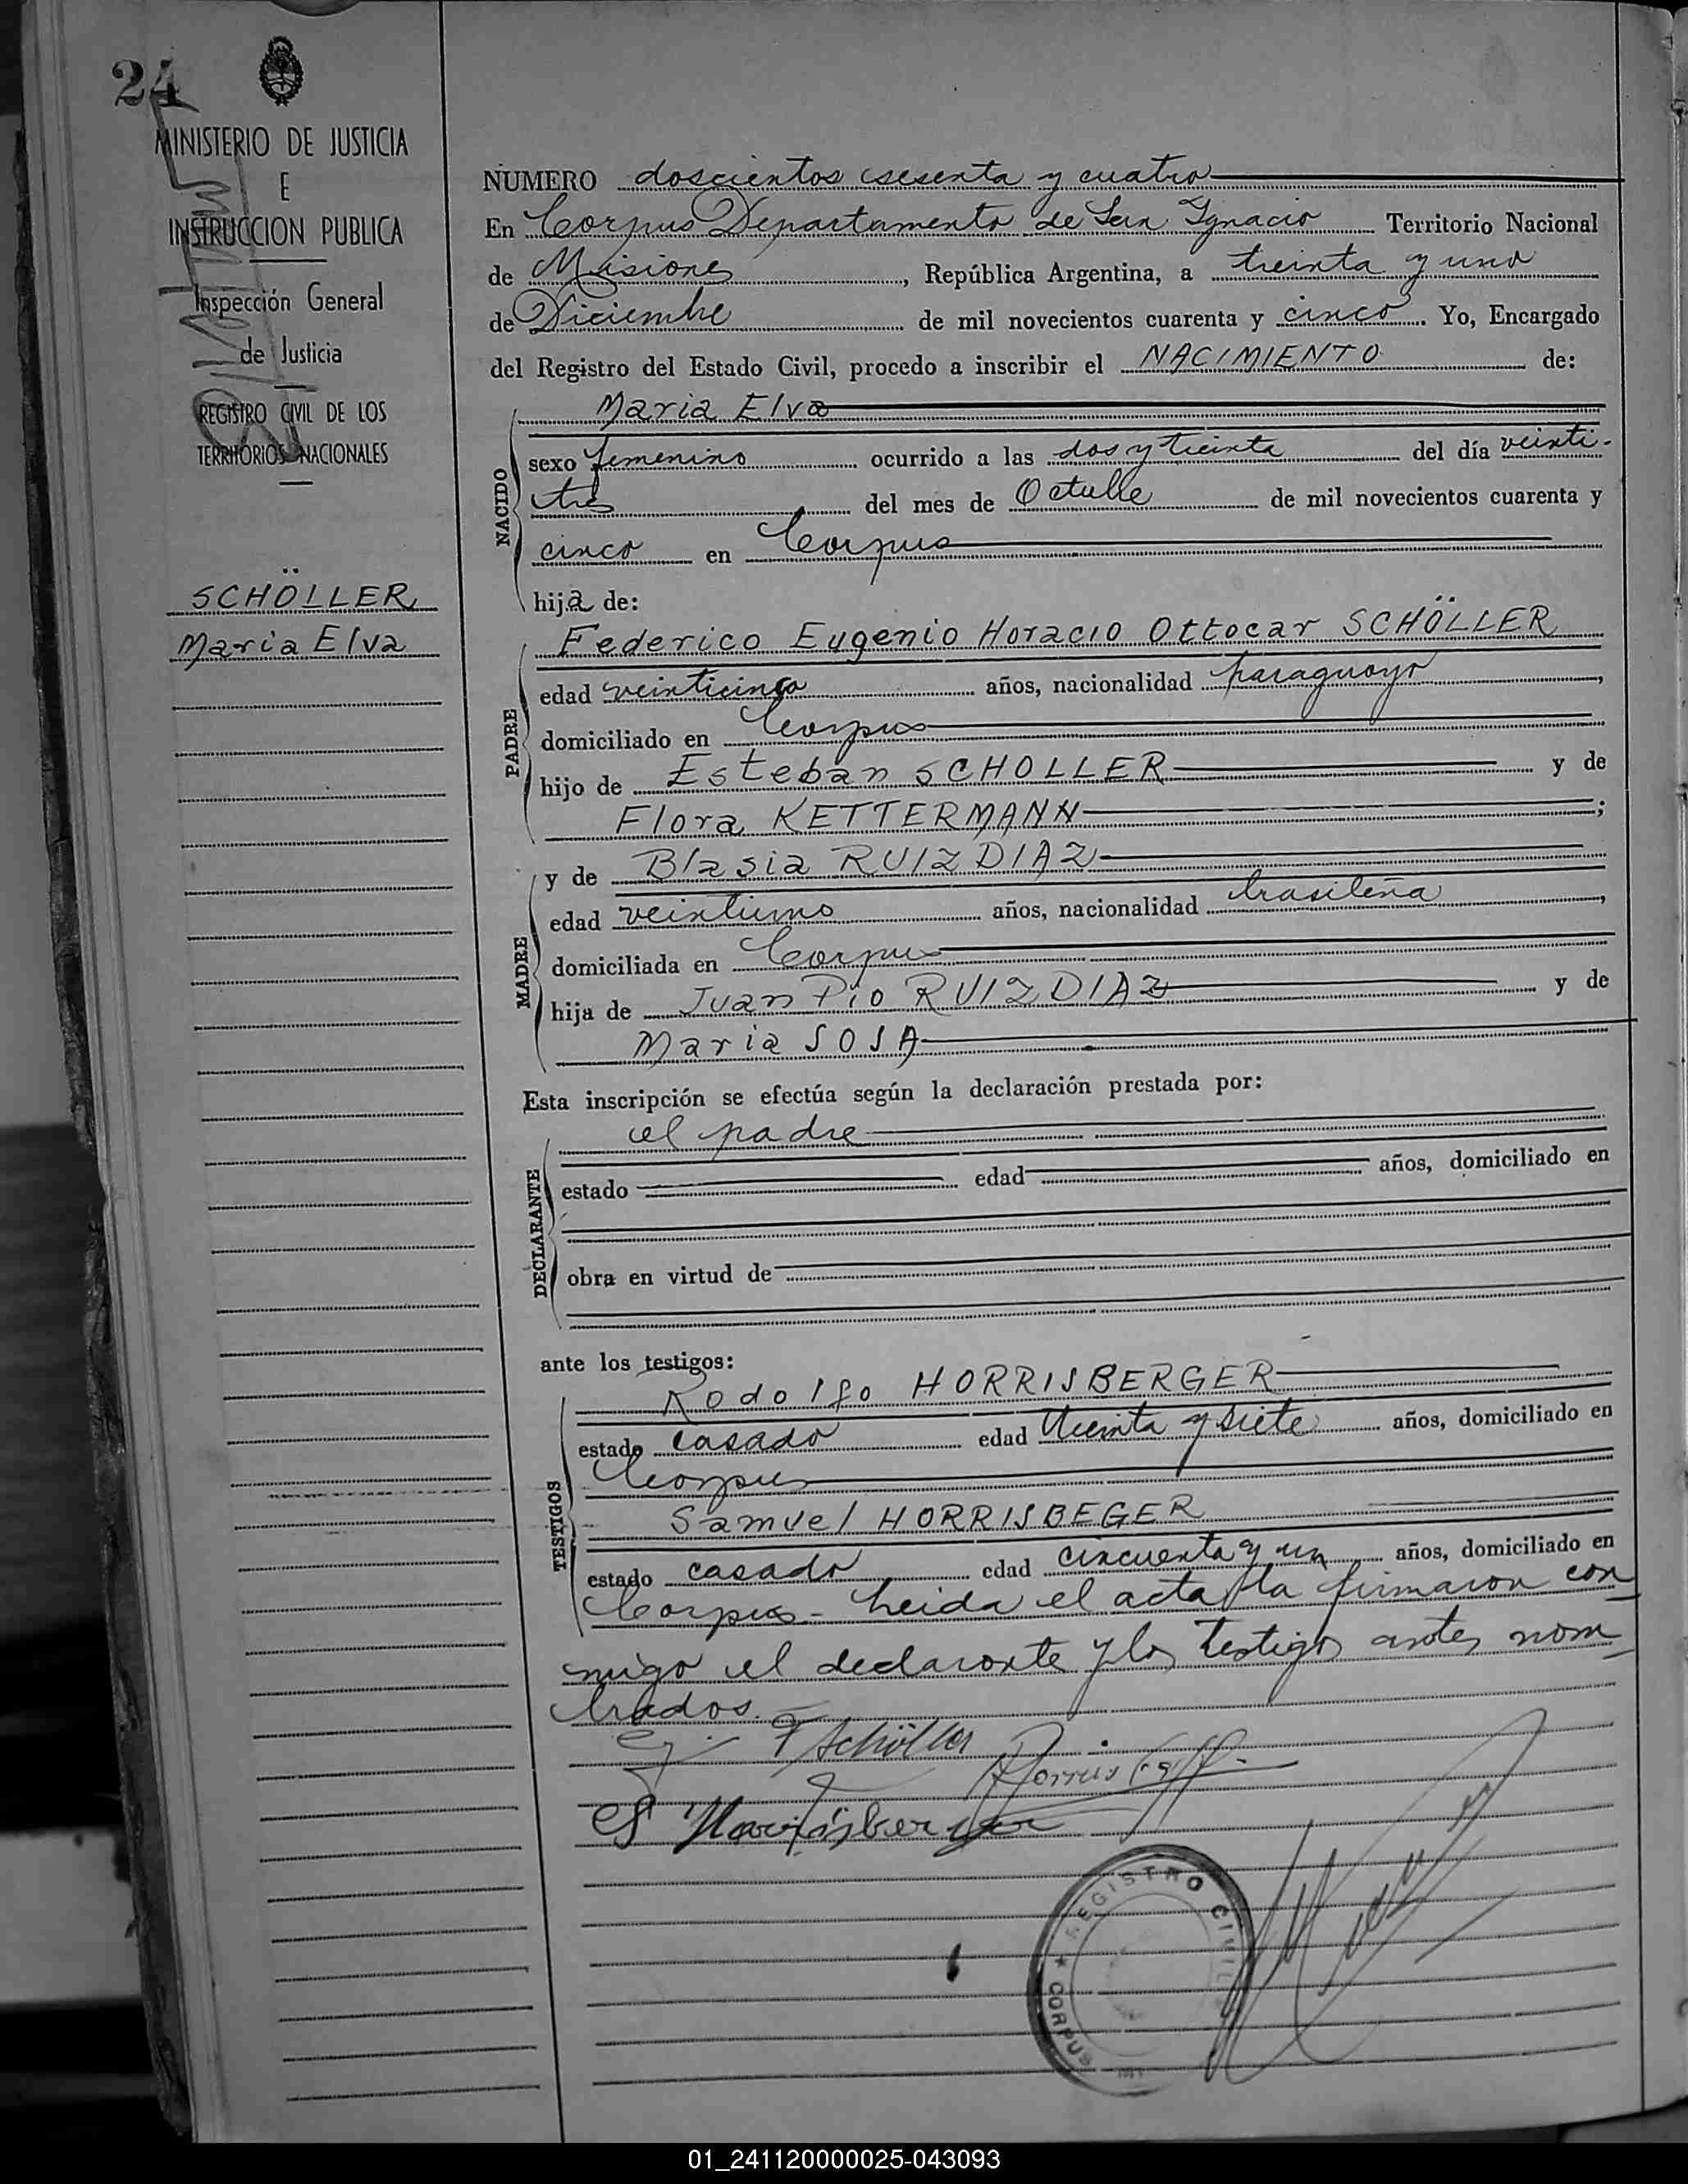 24
MINISTERIO DE JUSTICIA
E
INSTRUCCION PUBLICA
Inspección General
de Justicia
REGISTRO CIVIL DE LOS
TERRITORIOS NACIONALES
SCHÖLLER
Maria Elva
NUMERO doscientos sesenta y cuatro
En Corpus Departamento de San Ygnacio Territorio Nacional
de Misiones, República Argentina, a treinta y uno
de Diciembre de mil novecientos cuarenta y cinco. Yo, Encargado
del Registro del Estado Civil, procedo a inscribir el NACIMIENTO de:
NACIDO
Maria Elva
sexo femenino ocurrido a las dos y treinta del día veinti-
trés del mes de Octubre de mil novecientos cuarenta y
cinco en Corpus
hija de:
PADRE
Federico Eugenio Horacio Ottocar SCHÖLLER
edad veinticinco años, nacionalidad paraguayo,
domiciliado en Corpus
hijo de Esteban SCHOLLER y de
Flora KETTERMANN;
MADRE
y de Blasia RUIZ DIAZ
edad veintiuno años, nacionalidad brasileña,
domiciliada en Corpus
hija de Juan Pío RUIZ DIAZ y de
Maria SOSA
Esta inscripción se efectúa según la declaración prestada por:
DECLARANTE
el padre
estado edad años, domiciliado en
obra en virtud de
ante los testigos:
TESTIGOS
Rodolfo HORRISBERGER
estado casado edad treinta y siete años, domiciliado en
Corpus
Samuel HORRISBEGER
estado casado edad cincuenta y un años, domiciliado en
Corpus - Leida el acta la firmaron con
migo el declarante y los testigos antes nom
brados.
F Schöller
S Horrisberger
REGISTRO CIVIL
★ CORPUS
01_241120000025-043093